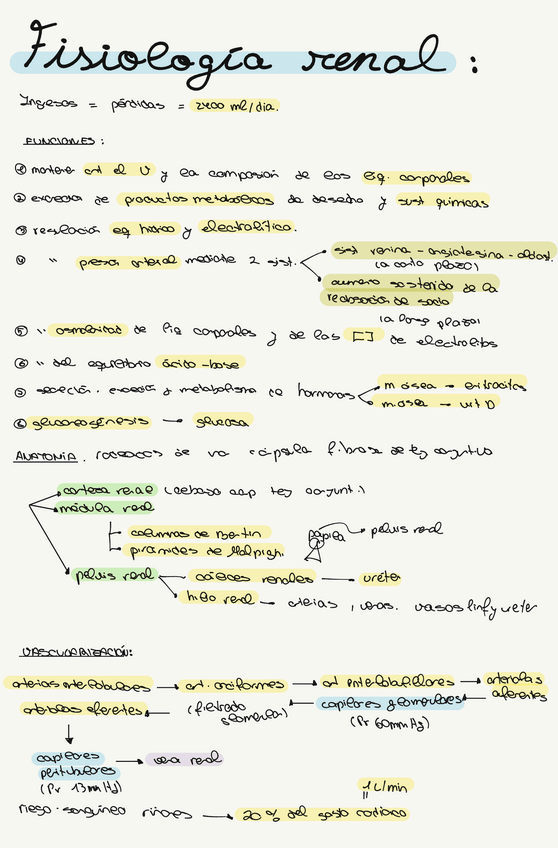 Fisiología renal :
Ingresos = pérdidas = 2400 ml/dia.
FUNCIONES :
① mantener el V y la composición de los liq. corporales
② excreción de productos metabólicos de desecho y sust químicas
③ regulación eq hídrico y electrolítico.
④ " presión arterial mediante 2 sist.
sist renina - angiotensina - aldost.
(a corto plazo)
aumento sostenido de la
reabsorción de sodio
(a largo plazo)
⑤ " osmolaridad de liq corporales y de las [ ] de electrolitos
⑥ " del equilibrio ácido-base
secreción, excreción y metabolismo de hormonas
m. ósea → eritrocitos
m. ósea → vit D
gluconeogénesis → glucosa
ANATOMÍA . rodeados de una cápsula fibrosa de tej conjuntivo
corteza renal (debajo cap tej conjunt.)
médula renal
columnas de Bertin
pirámides de Malpighi
papila → pelvis renal
pelvis renal
cálices renales → uréter
hilio renal → arterias, venas, vasos linf y ureter
VASCULARIZACIÓN:
arterias interlobulares → art. arciformes → art interlobulillares → arteriolas
aferentes
arteriolas eferentes ← (filtrado
glomerular) ← capilares glomerulares
(Pr 60mmHg)
capilares
peritubulares → vena renal
(Pr 13mmHg)
1L/min
"
riego sanguíneo riñones → 20 % del gasto cardiaco